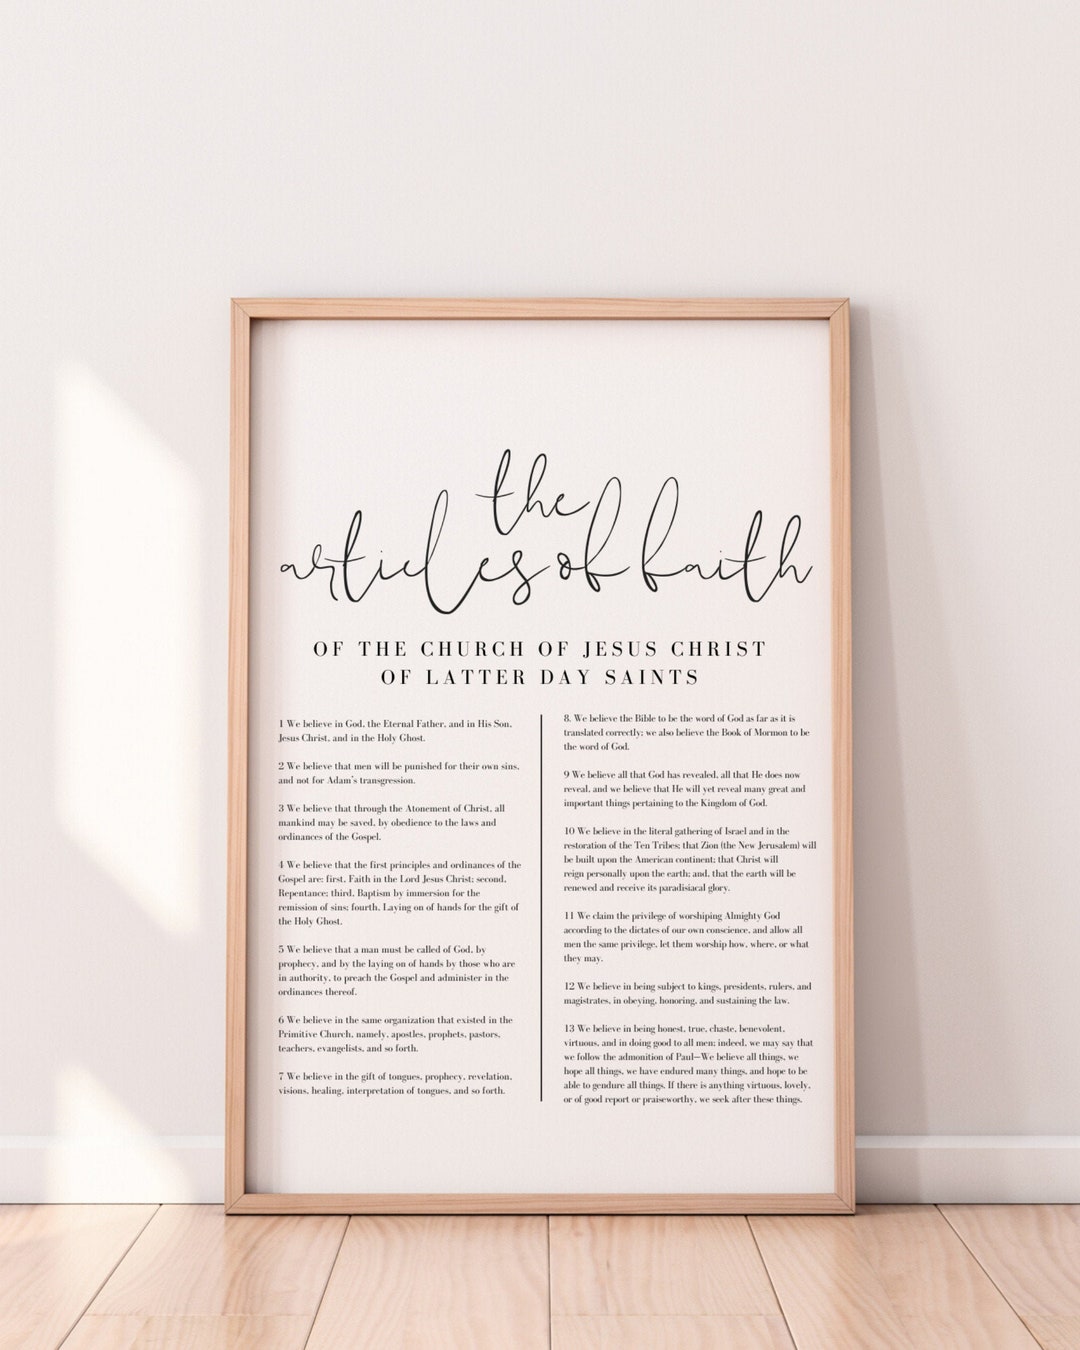 the
articles of faith
OF THE CHURCH OF JESUS CHRIST
OF LATTER DAY SAINTS
1 We believe in God, the Eternal Father, and in His Son,
Jesus Christ, and in the Holy Ghost.
2 We believe that men will be punished for their own sins,
and not for Adam's transgression.
3 We believe that through the Atonement of Christ, all
mankind may be saved, by obedience to the laws and
ordinances of the Gospel.
4 We believe that the first principles and ordinances of the
Gospel are: first, Faith in the Lord Jesus Christ; second,
Repentance; third, Baptism by immersion for the
remission of sins; fourth, Laying on of hands for the gift of
the Holy Ghost.
5 We believe that a man must be called of God, by
prophecy, and by the laying on of hands by those who are
in authority, to preach the Gospel and administer in the
ordinances thereof.
6 We believe in the same organization that existed in the
Primitive Church, namely, apostles, prophets, pastors,
teachers, evangelists, and so forth.
7 We believe in the gift of tongues, prophecy, revelation,
visions, healing, interpretation of tongues, and so forth.
8. We believe the Bible to be the word of God as far as it is
translated correctly; we also believe the Book of Mormon to be
the word of God.
9 We believe all that God has revealed, all that He does now
reveal, and we believe that He will yet reveal many great and
important things pertaining to the Kingdom of God.
10 We believe in the literal gathering of Israel and in the
restoration of the Ten Tribes; that Zion (the New Jerusalem) will
be built upon the American continent; that Christ will
reign personally upon the earth; and, that the earth will be
renewed and receive its paradisiacal glory.
11 We claim the privilege of worshiping Almighty God
according to the dictates of our own conscience, and allow all
men the same privilege, let them worship how, where, or what
they may.
12 We believe in being subject to kings, presidents, rulers, and
magistrates, in obeying, honoring, and sustaining the law.
13 We believe in being honest, true, chaste, benevolent,
virtuous, and in doing good to all men; indeed, we may say that
we follow the admonition of Paul—We believe all things, we
hope all things, we have endured many things, and hope to be
able to gendure all things. If there is anything virtuous, lovely,
or of good report or praiseworthy, we seek after these things.